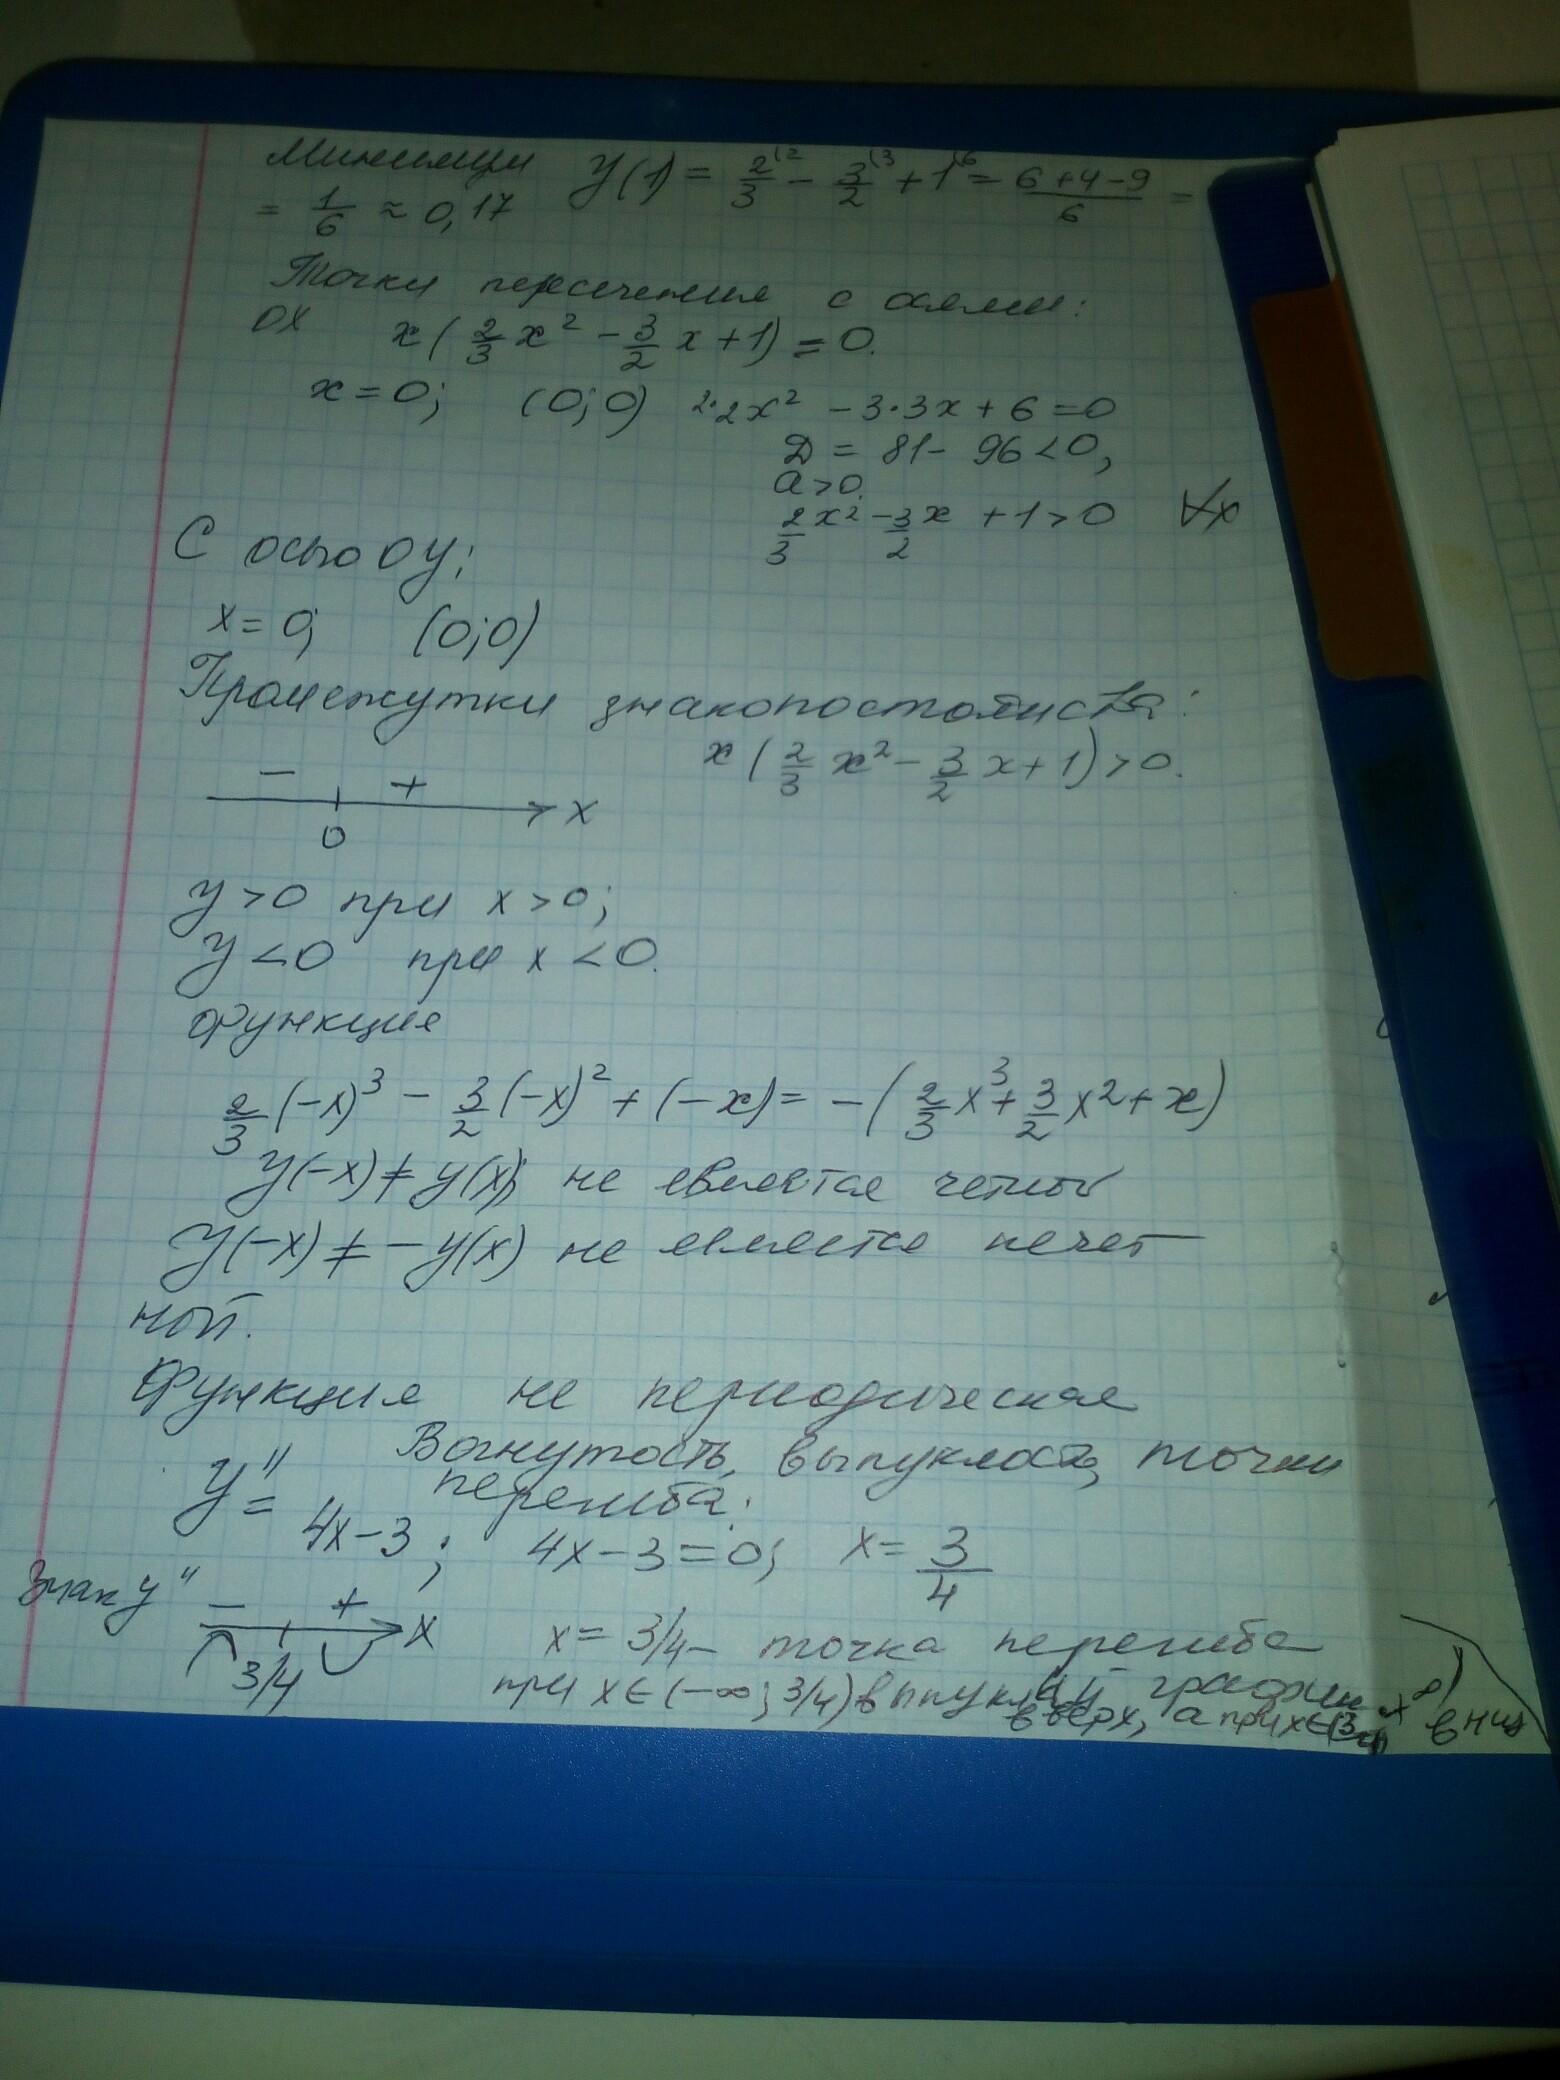 Минимум y(1) = 2/3 - 3/2 + 1 = (6+4-9)/6 =
= 1/6 ≈ 0,17
Точки пересечения с осями:
OX x(2/3 x² - 3/2 x + 1) = 0.
x = 0; (0;0) 2·2x² - 3·3x + 6 = 0
D = 81 - 96 < 0,
a > 0.
2/3 x² - 3/2 x + 1 > 0 ∀x
С осью OY;
x = 0; (0;0)
Промежутки знакопостоянства:
x(2/3 x² - 3/2 x + 1) > 0.
- + x
0
y > 0 при x > 0;
y < 0 при x < 0.
Функция
2/3 (-x)³ - 3/2 (-x)² + (-x) = -(2/3 x³ + 3/2 x² + x)
y(-x) ≠ y(x); не является четной
y(-x) ≠ -y(x) не является нечет
ной.
Функция не периодическая
Вогнутость, выпуклость, точки
перегиба:
y'' = 4x - 3; 4x - 3 = 0; x = 3/4
Знак y'' - + x
3/4
x = 3/4 - точка перегиба
при x ∈ (-∞; 3/4) выпуклый график
вверх, а при x ∈ (3/4; +∞) вниз